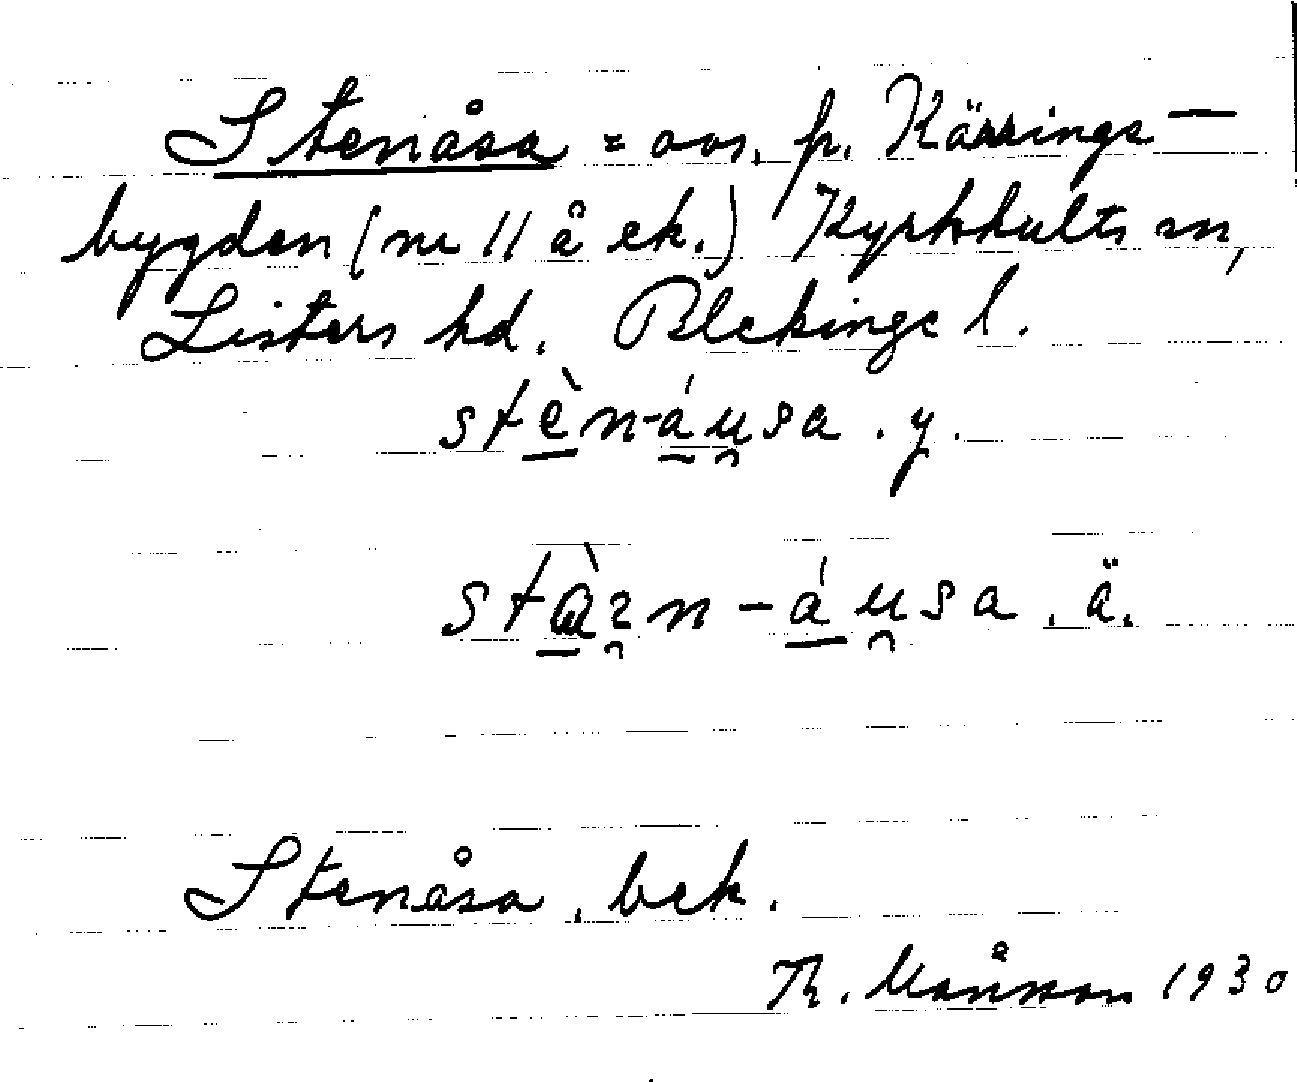 Stenåsa = avs. p. Kärrings-
bygden (nr 11 å ek.) Kyrkhults sn,
Listers hd. Blekinge l.
stèn-áusa. y.
stàın-áusa. ä.
Stenåsa, bek.
Th. Månsson 1930